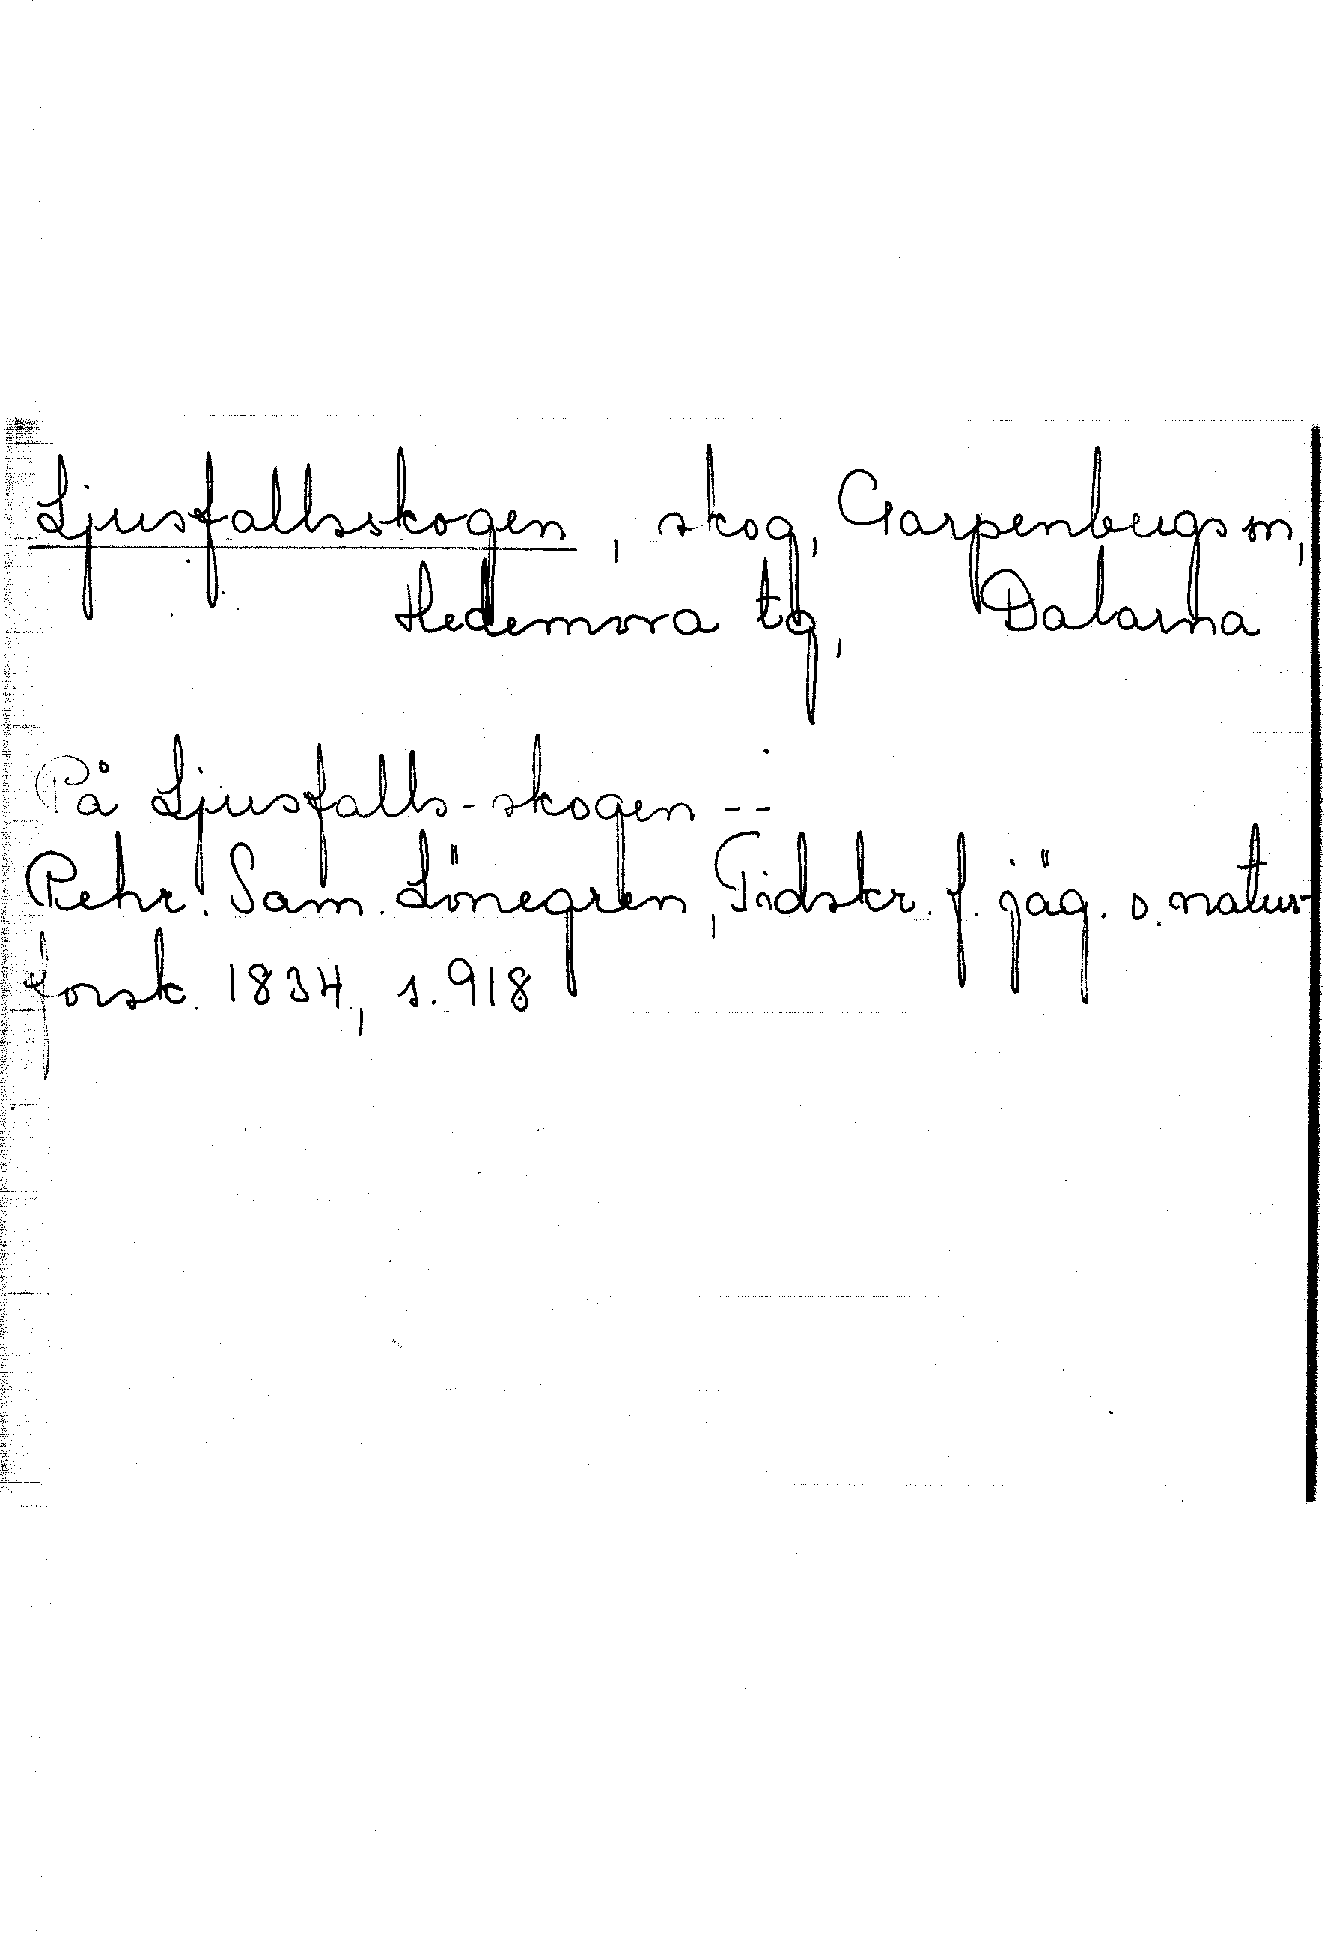 Ljusfallsskogen, skog, Garpenbergs sn,
Hedemora tg, Dalarna
På Ljusfalls-skogen --
Pehr. Sam. Lönegren, Tidskr. f. jäg. o. natur-
forsk. 1834, s. 918